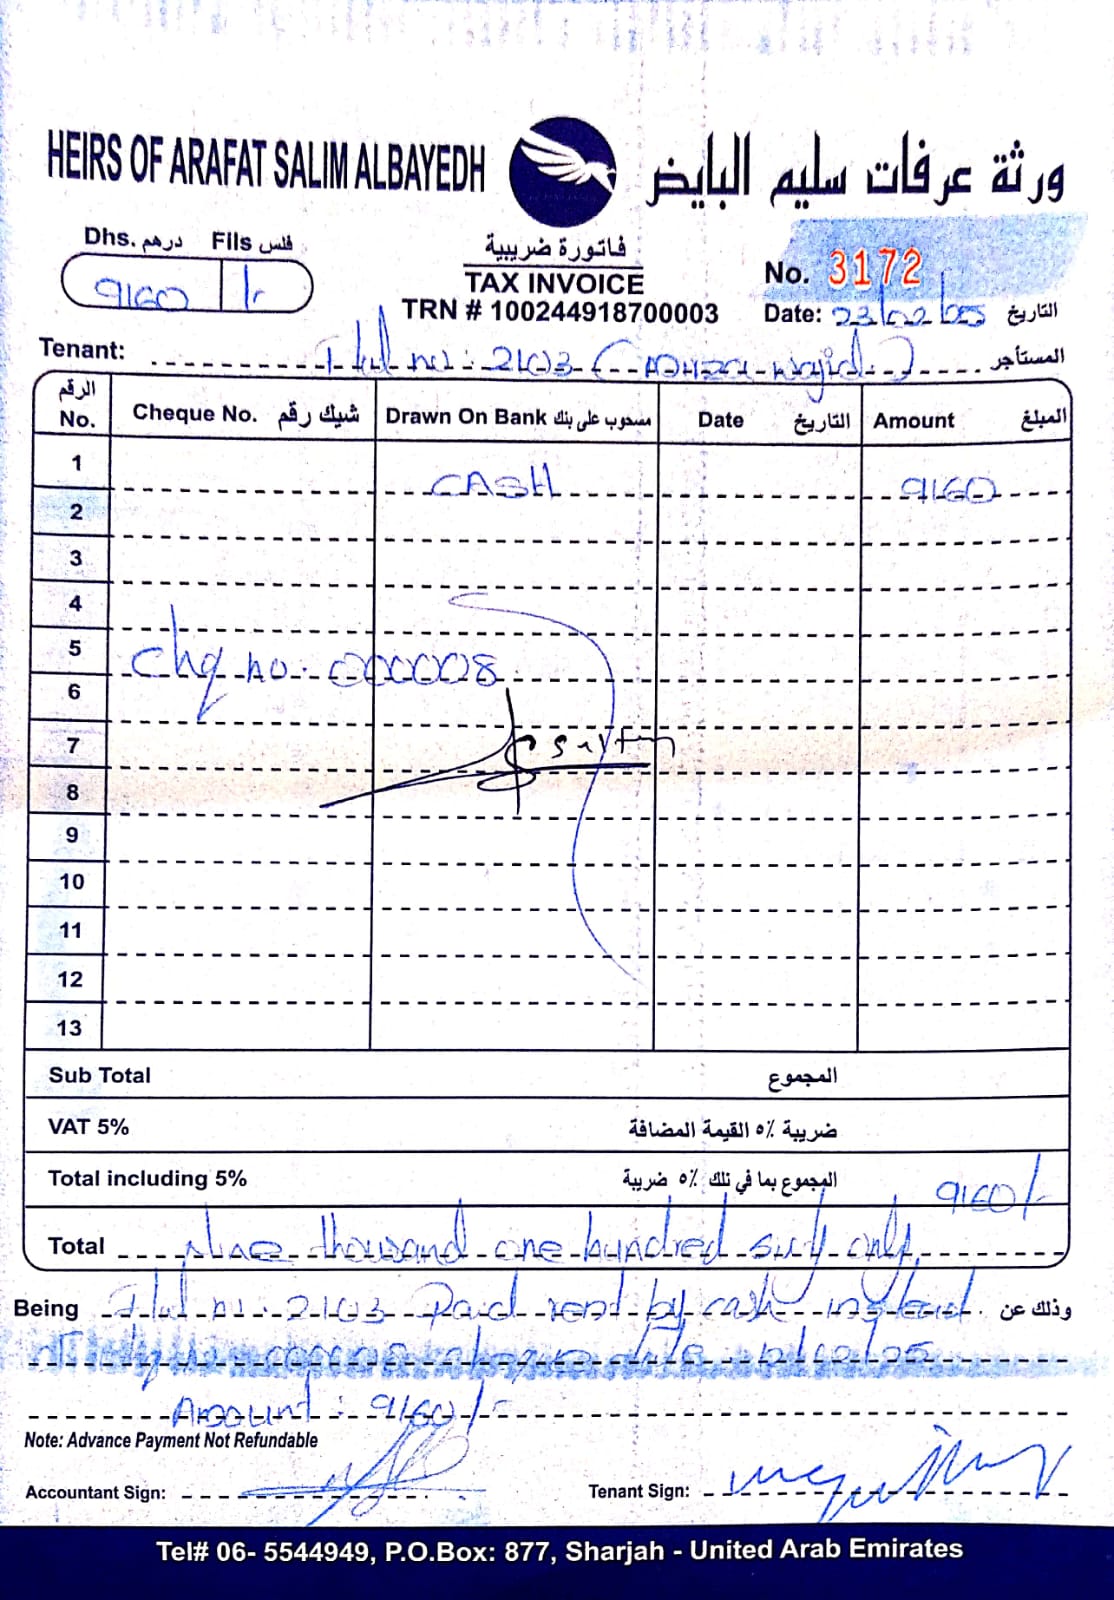 HEIRS OF ARAFAT SALIM ALBAYEDH
ورثة عرفات سليم البايض
Dhs. درهم Fils فلس
9160 /-
فاتورة ضريبية
TAX INVOICE
TRN # 100244918700003
No. 3172
Date: 23/02/25 التاريخ
Tenant: Flat no: 2103 المستأجر
الرقم No. Cheque No. شيك رقم Drawn On Bank مسحوب على بنك Date التاريخ Amount المبلغ
1 CASH 9160
2
3
4
5 Chq no: 000008
6
7
8
9
10
11
12
13
Sub Total المجموع
VAT 5% ضريبة ٥% القيمة المضافة
Total including 5% المجموع بما في تلك ٥% ضريبة 9160/-
Total Nine thousand one hundred sixty only
Being Flat no: 2103 Paid rent by cash instead وذلك عن
000008
Amount: 9160/-
Note: Advance Payment Not Refundable
Accountant Sign:
Tenant Sign:
Tel# 06- 5544949, P.O.Box: 877, Sharjah - United Arab Emirates